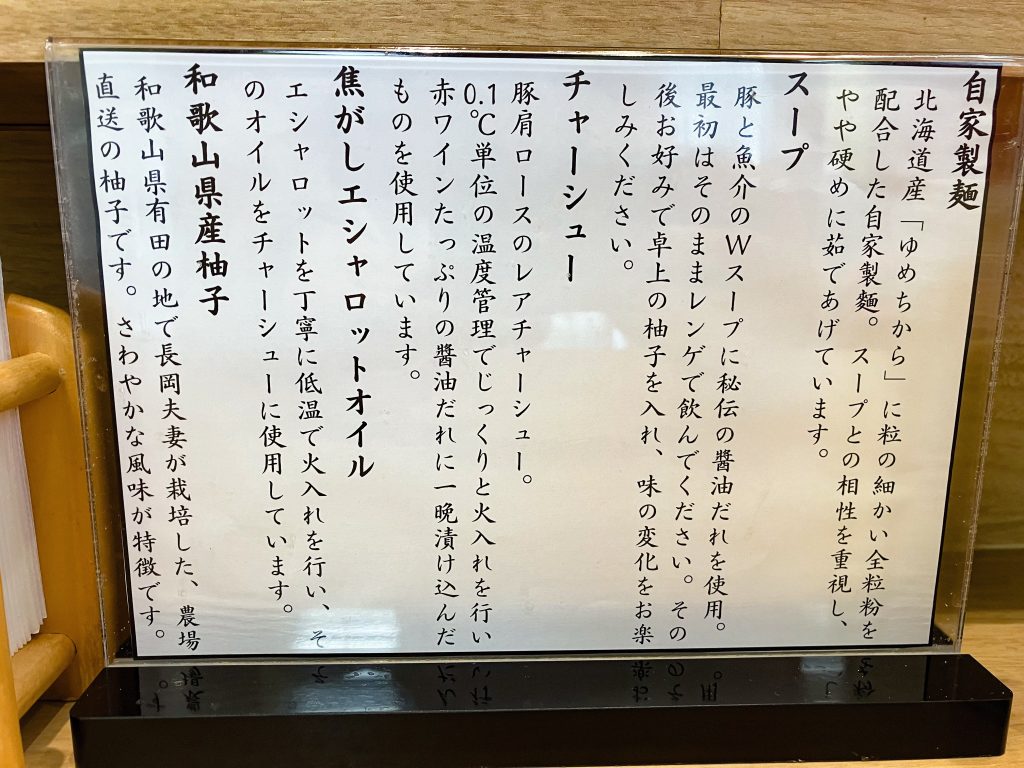 自家製麺
北海道産「ゆめちから」に粒の細かい全粒粉を
配合した自家製麺。スープとの相性を重視し、
やや硬めに茹であげています。
スープ
豚と魚介のWスープに秘伝の醤油だれを使用。
最初はそのままレンゲで飲んでください。その
後お好みで卓上の柚子を入れ、味の変化をお楽
しみください。
チャーシュー
豚肩ロースのレアチャーシュー。
0.1℃単位の温度管理でじっくりと火入れを行い
赤ワインたっぷりの醤油だれに一晩漬け込んだ
ものを使用しています。
焦がしエシャロットオイル
エシャロットを丁寧に低温で火入れを行い、そ
のオイルをチャーシューに使用しています。
和歌山県産柚子
和歌山県有田の地で長岡夫妻が栽培した、農場
直送の柚子です。さわやかな風味が特徴です。